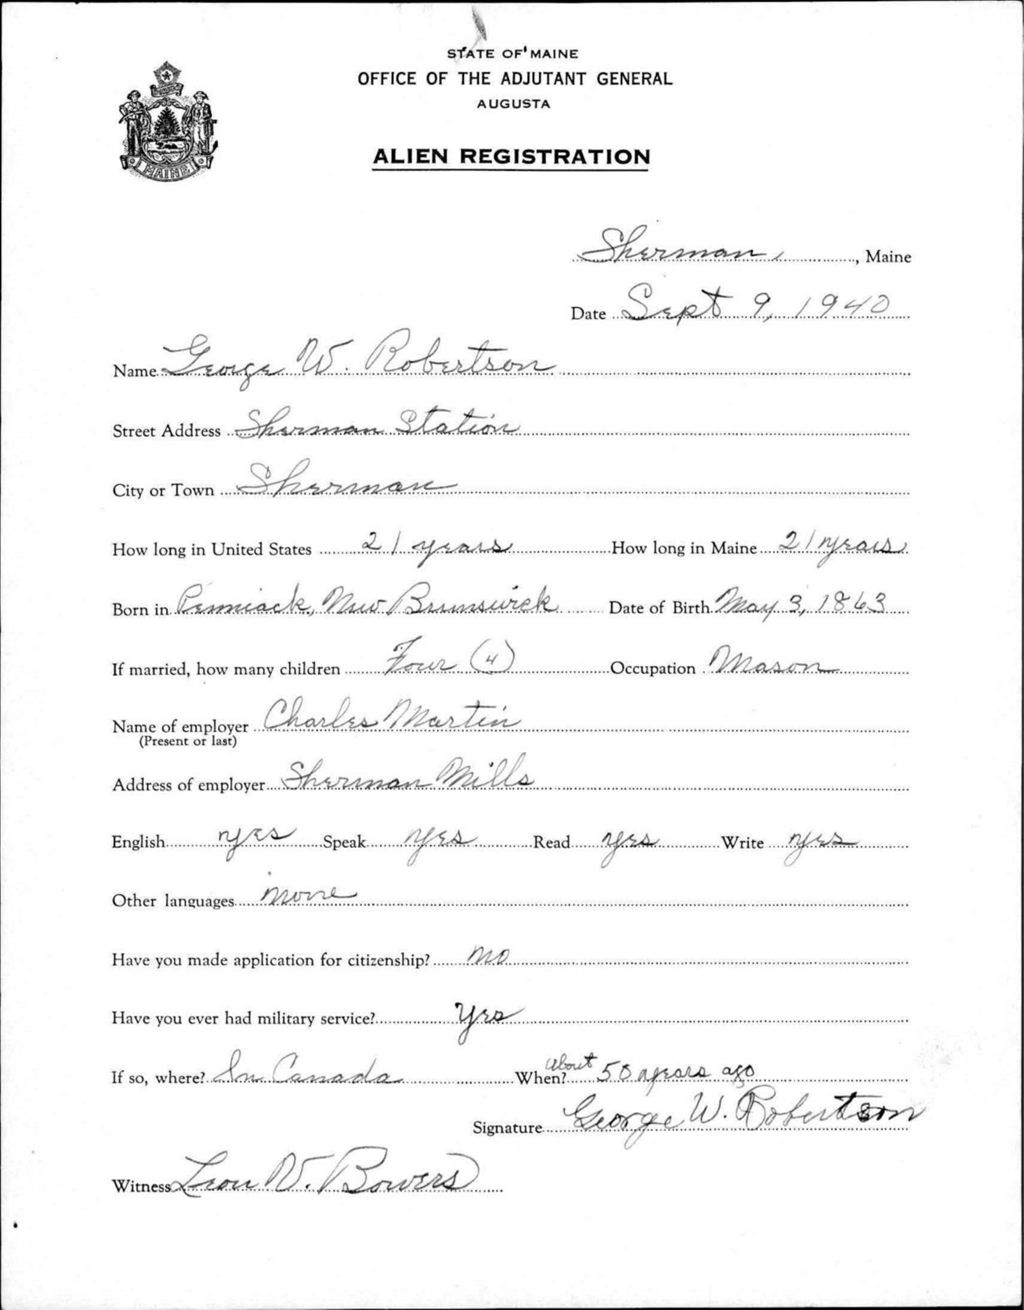 STATE OF MAINE
OFFICE OF THE ADJUTANT GENERAL
AUGUSTA
ALIEN REGISTRATION
MAINE
Sherman, Maine
Date Sept 9, 1940
Name George W. Robertson
Street Address Sherman Station
City or Town Sherman
How long in United States 21 years How long in Maine 21 years
Born in Penniack, New Brunswick Date of Birth May 3, 1863
If married, how many children Four (4) Occupation Mason
Name of employer Charles Martin
(Present or last)
Address of employer Sherman Mills
English yes Speak yes Read yes Write yes
Other languages none
Have you made application for citizenship? no
Have you ever had military service? Yes
If so, where? In Canada When? About 50 years ago
Signature George W. Robertson
Witness Leon W. Bowers